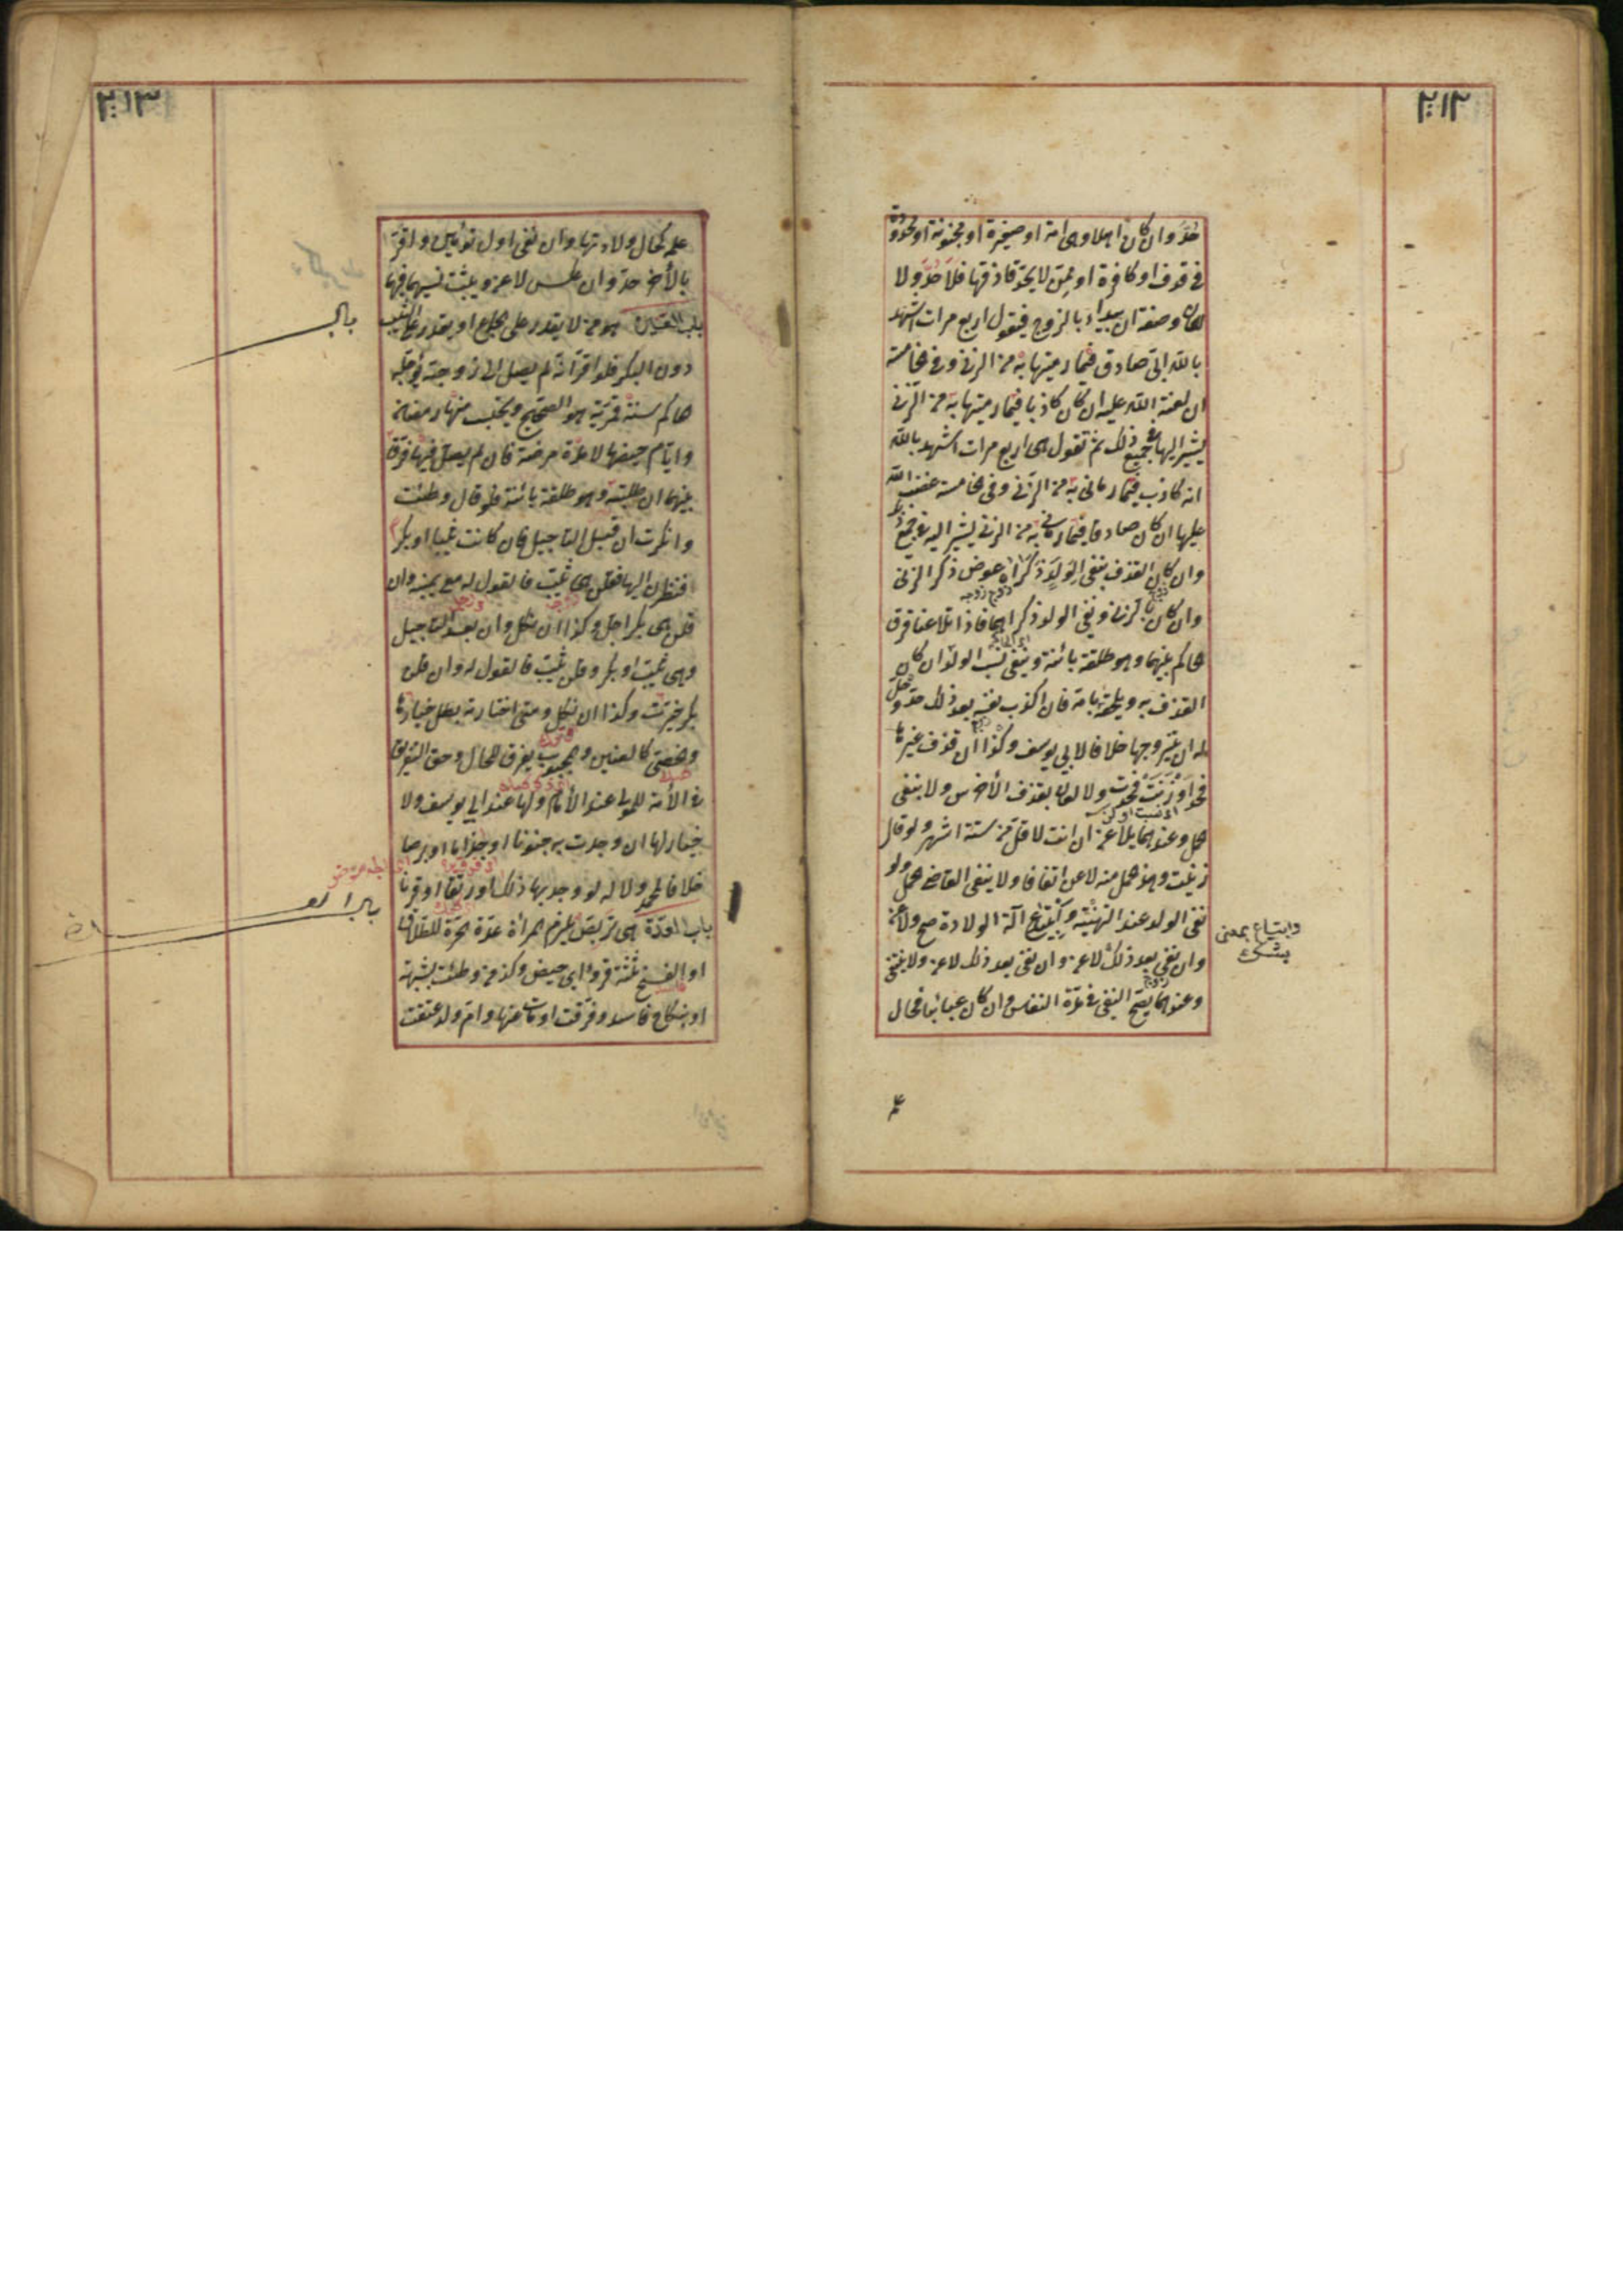 ٢١٢
حُدَّ وان كان اهلا وهى امة او صغيرة او مجنونة او محدودة
فى قذف او كافرة او ممن لا يحد قاذفها فلا حدّ ولا
لعان وصفته ان يبداء بالزوج فيقول اربع مرات اشهد
بالله انى صادق فيما رميتها به من الزنى وفى الخامسة
ان لعنة الله عليه ان كان كاذبا فيما رميتها به من الزنى
يشير اليها فى جميع ذلك ثم تقول هى اربع مرات اشهد بالله
انه كاذب فيما رمانى به من الزنى وفى الخامسة غضب الله
عليها ان كان صادقا فيما رمانى به من الزنى يشير اليه فى جميع ذلك
وان كان القذف بنفى الولد ذكراه عوض ذكر الزنى
وان كان بالزنى ونفى الولد ذكراهما فاذا تلاعنا فرق
الحاكم بينهما وهو طلقة بائنة وينفى نسب الولد ان كان
القذف به ويلحقه بامه فان اكذب نفسه بعد ذلك حدّ وحلّ
له ان يتزوجها خلافا لابى يوسف وكذا ان قذف غيرها
فحد او زنت فحدت ولا لعان بقذف الأخرس ولا بنفى
الحمل وعندهما يلاعن ان اتت لاقل من ستة اشهر ولو قال
زنيت وهذا الحمل منه لاعن اتفاقا ولا ينفى القاضى الحمل ولو
نفى الولد عند التهنئة وابتياع آلة الولادة صح ولاعن
وان نفى بعد ذلك لاعن وان نفى بعد ذلك لاعن ولا ينتفى
وعندهما يصح النفى فى مدّة النفاس وان كان غائبا فحال
وابتياع بمعنى
يشترى
٢١٣
علمه كحال ولادتها وان نفى اول توأمين واقرّ
بالأخر حدّ وان عكس لاعن ويثبت نسبهما فيهما
باب العنين هو من لا يقدر على الجماع او يقدر على الثيب
دون البكر فلو اقر انه لم يصل الى زوجته يؤجله
الحاكم سنة قمريّة هو الصحيح ويحتسب منها رمضان
وايّام حيضها لا مدّة مرضه فان لم يصل فيها فرّق
بينهما ان طلبته وهو طلقة بائنة فلو قال وطئت
وانكرت ان قبل التاجيل فان كانت ثيبا او بكرا
فنظرن اليها فقلن هى ثيّب فالقول له مع يمينه وان
قلن هى بكر اجل وكذا ان نكل وان بعد التاجيل
وهى ثيب او بكر وقلن ثيّب فالقول له وان قلن
بكر خيرت وكذا ان نكل ومتى اختارته بطل خيارها
والخصى كالعنين والمجبوب يفرق للحال وحق التفريق
فى الأمة للمولى عند الأمام ولها عند ابى يوسف ولا
خيار لها ان وجدت به جنونا او جذاما او برصا
خلافا لمحمد ولا له لو وجد بها ذلك او رتقا او قرنا
باب العدّة هى تربص يلزم المرأة عدّة الحرة للطلاق
او الفسخ ثلثة قروء اى حيض وكذا من وطئت بشبهة
او بنكاح فاسد وفرّقت او مات عنها وام ولد عتقت